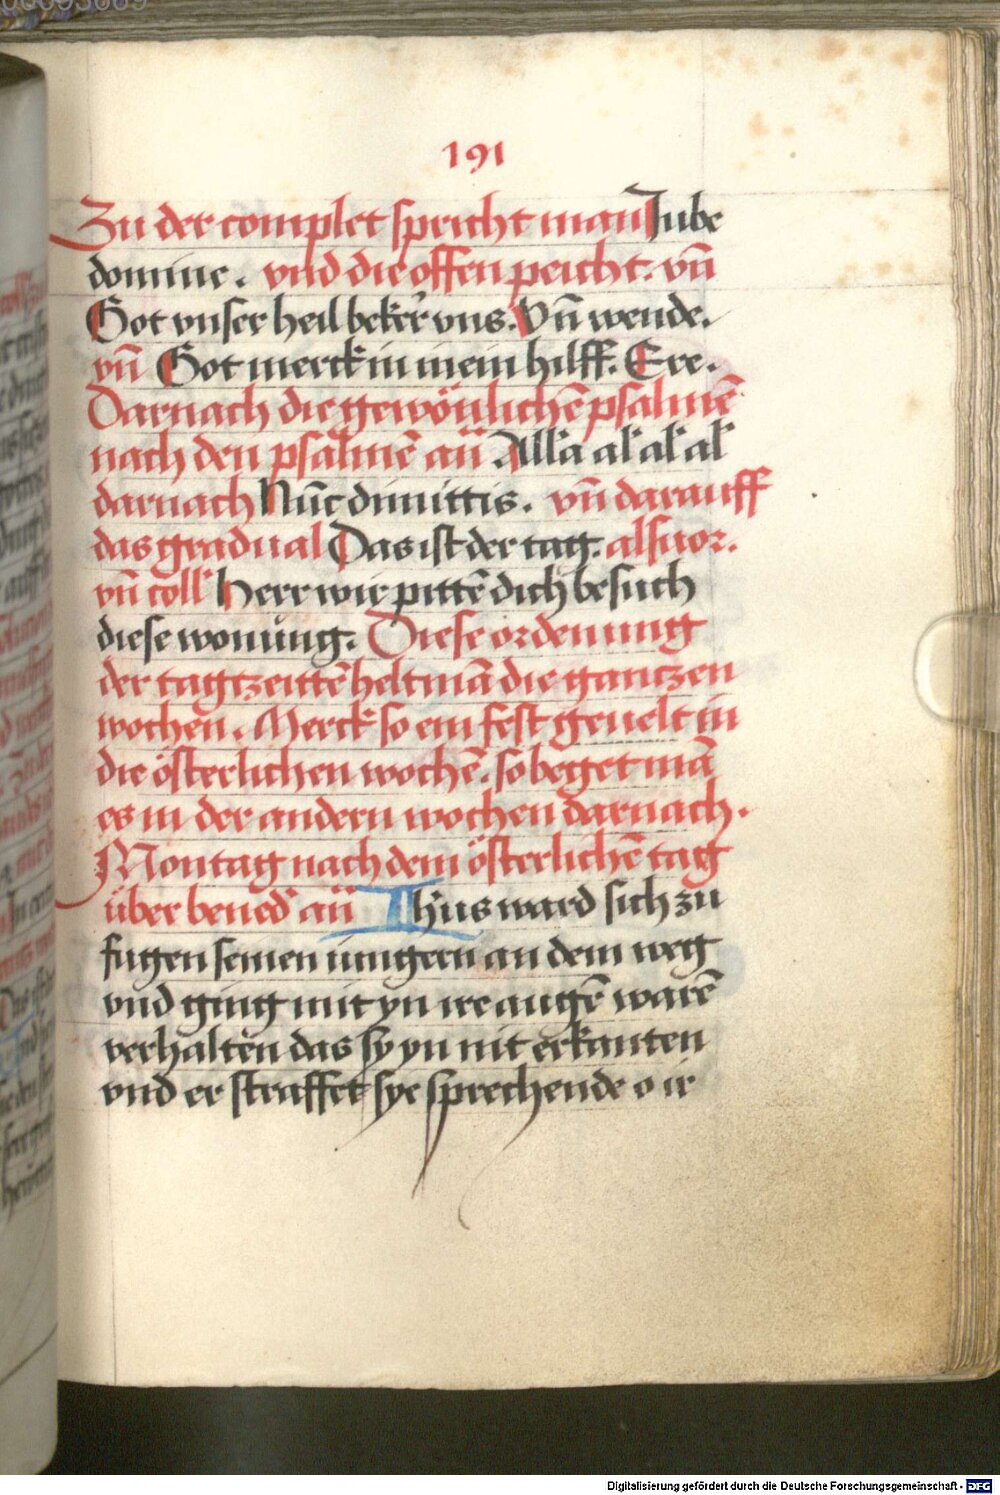 191
Zu der complet spricht man Jube
domine. vnd die offen peicht. vn̄
Got vnser heil beker̛ vns. Vn̄ wende.
vn̄ Got merck in mein hilff. Ere.
Darnach die gewönlichē psalmē
nach den psalmē an̄ Alla al al al
darnach Nūc dimittis. vn̄ darauff
das gradual Das ist der tag. als uor.
vn̄ coll Herr wir pittē dich besuch
diese wonūng. Diese ordenung
der tagtzeittē helt mā die gantzen
wochen. Merck so ein fest geuelt in
die österlichen wochē. so beget mā
es in der andern wochen darnach.
Montag nach dem österlichē tag
über bened an̄ Ihūs ward sich zu
fugen seinen iungern an dem weg
vnd ging mit yn ire augē warē
verhalten das sy yn nit erkanten
vnd er straffet sye sprechende o ir
Digitalisierung gefördert durch die Deutsche Forschungsgemeinschaft - DFG